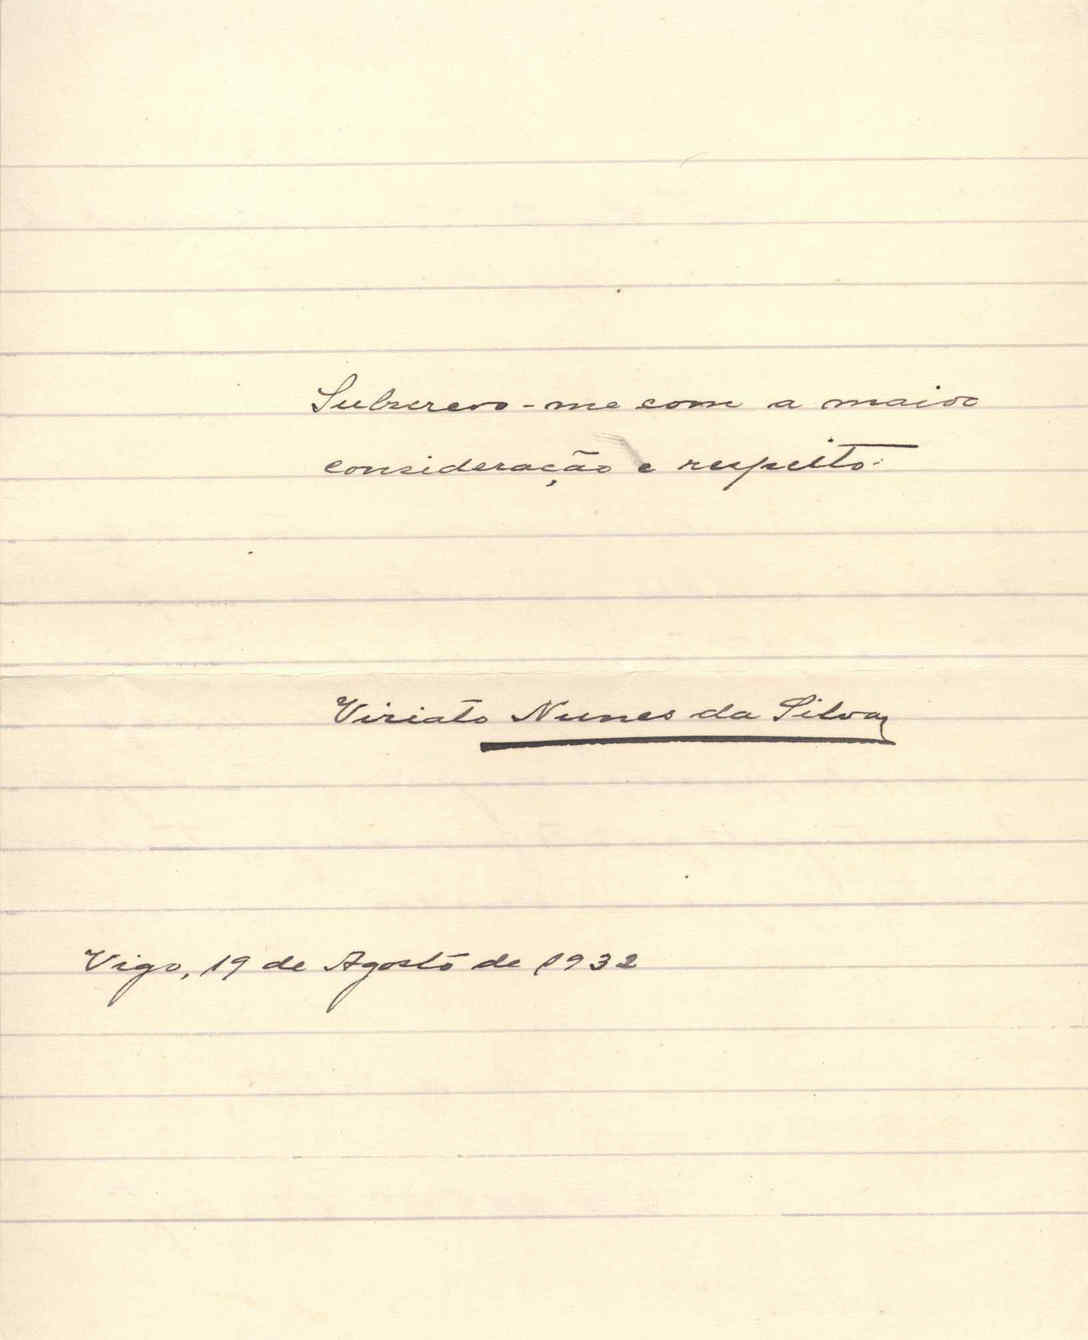 Subscrevo-me com a maior
consideração e respeito.
Viriato Nunes da Silva
Vigo, 19 de Agosto de 1932